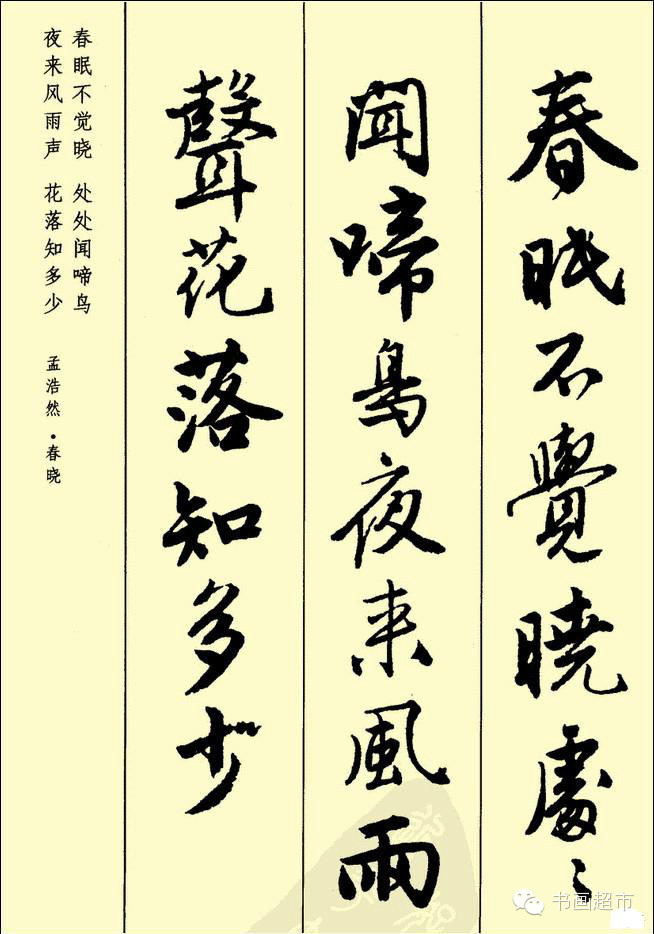 春眠不覺曉處〻
聞啼鳥夜来風雨
聲花落知多少
春眠不觉晓 处处闻啼鸟
夜来风雨声 花落知多少
孟浩然·春晓
书画超市